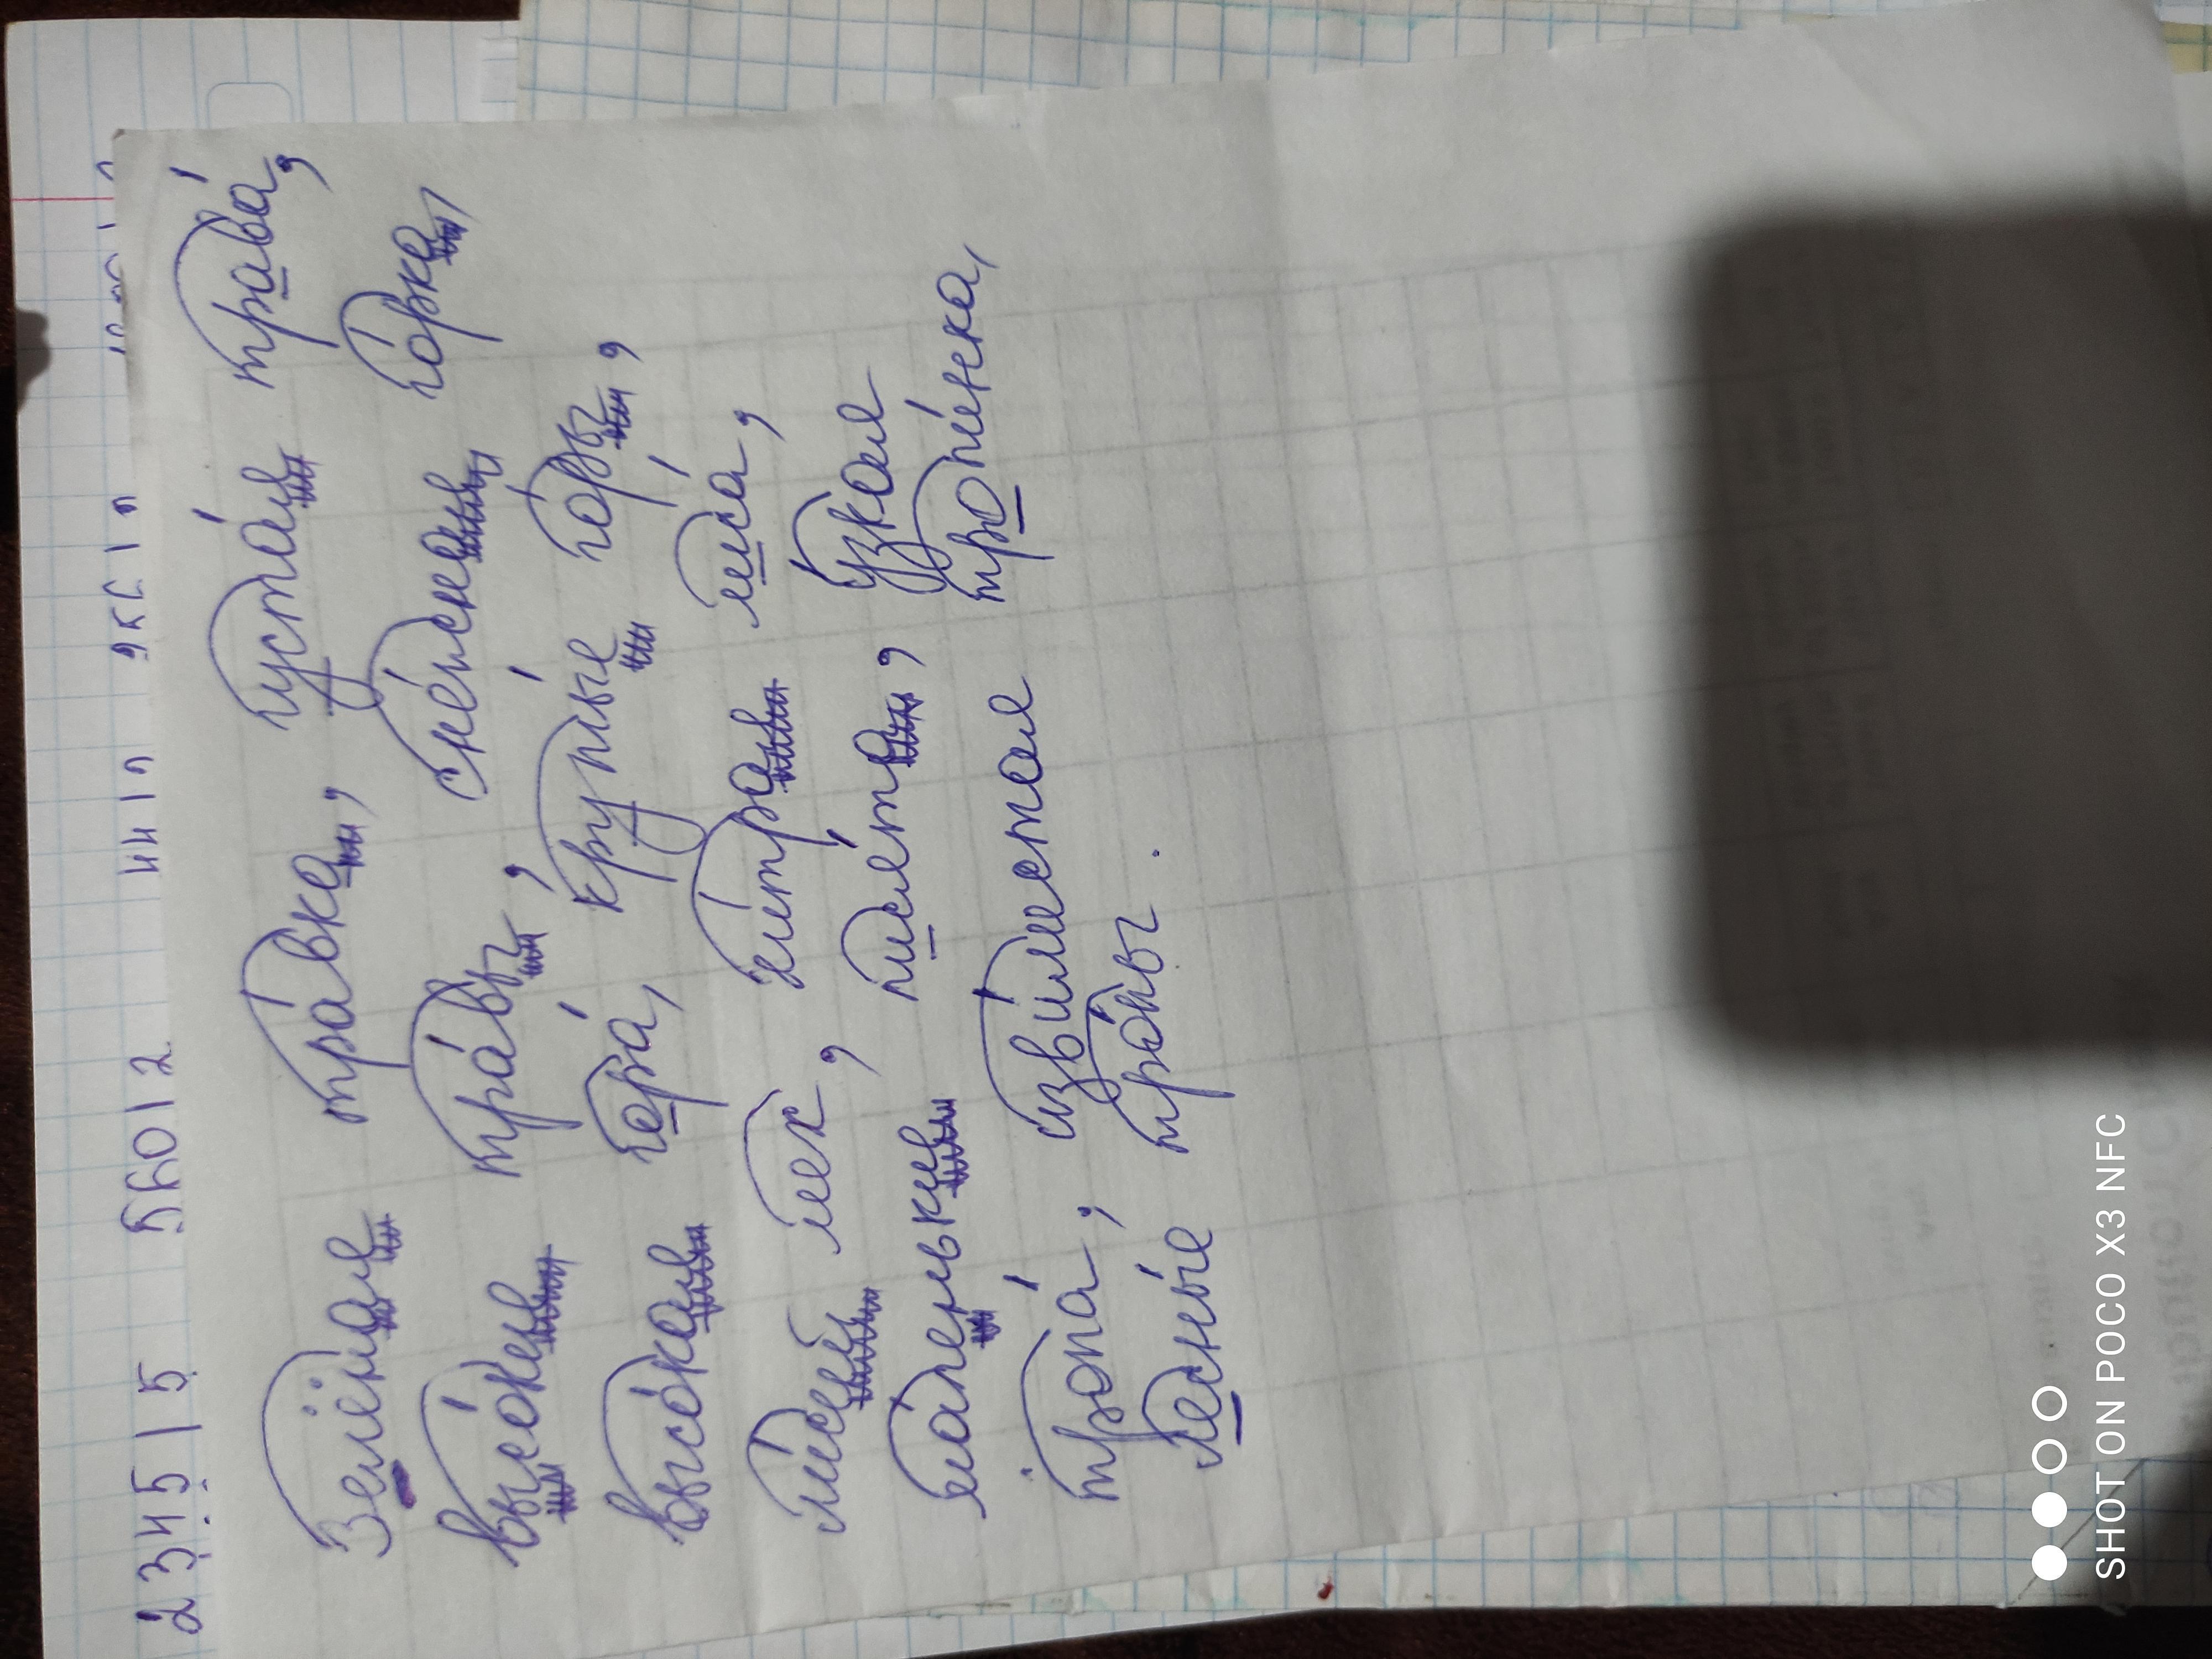 2345 | 5 5601 2
Зелёная травка, густая трава́,
высокие тра́вы, снежная горка,
высо́кая гора́, крутые́ горы,
лисий мех, хи́трая лиса́,
ма́ленькие лися́та, у́зкая
тропа́, изви́листая тропи́нка,
лесны́е тро́пы.
SHOT ON POCO X3 NFC